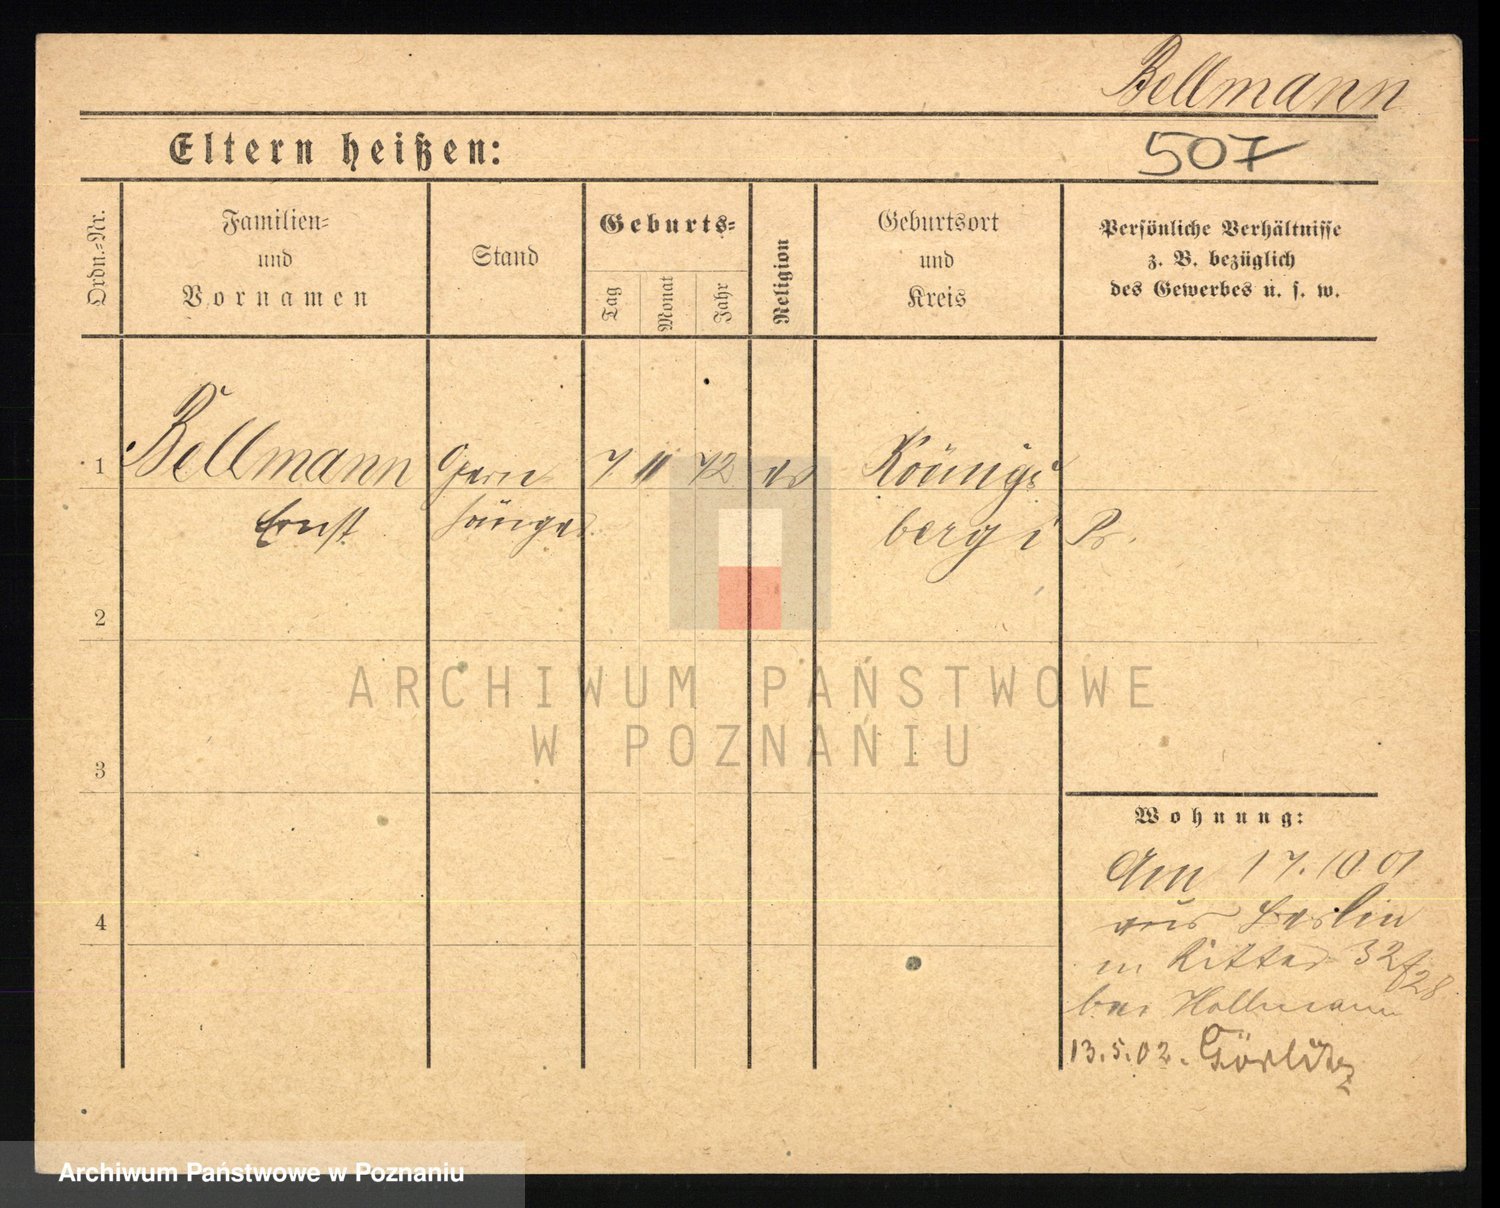 Bellmann
Eltern heißen:
507
Ordn.=Nr.
Familien=
und
Vornamen
Stand
Geburts=
Tag
Monat
Jahr
Religion
Geburtsort
und
Kreis
Persönliche Verhältnisse
z. B. bezüglich
des Gewerbes u. s. w.
1
Bellmann
Ernst
Opern
sänger
7 11 72
ev
Königs
berg i Pr.
2
3
4
ARCHIWUM PAŃSTWOWE
W POZNANIU
Wohnung:
Am 17.10 01
aus Berlin
n Ritter 32
bei Hollmann
13.5.02. Görlitz
Archiwum Państwowe w Poznaniu